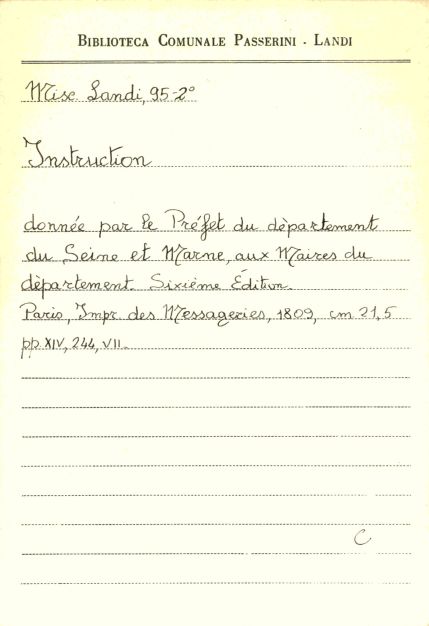 BIBLIOTECA COMUNALE PASSERINI - LANDI
Misc. Landi, 95-2°
Instruction
donnée par le Préfet du département
du Seine et Marne, aux Maires du
département. Sixième Édition.
Paris, Impr. des Messageries, 1809, cm 21,5
pp. XIV, 244, VII.
C